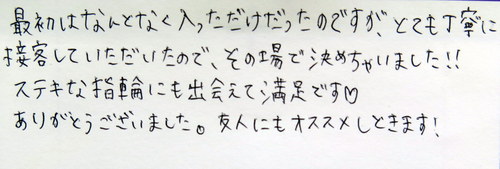 最初はなんとなく入っただけだったのですが、とても丁寧に
接客していただいたので、その場で決めちゃいました!!
ステキな指輪にも出会えて満足です♡
ありがとうございました。友人にもオススメしときます!